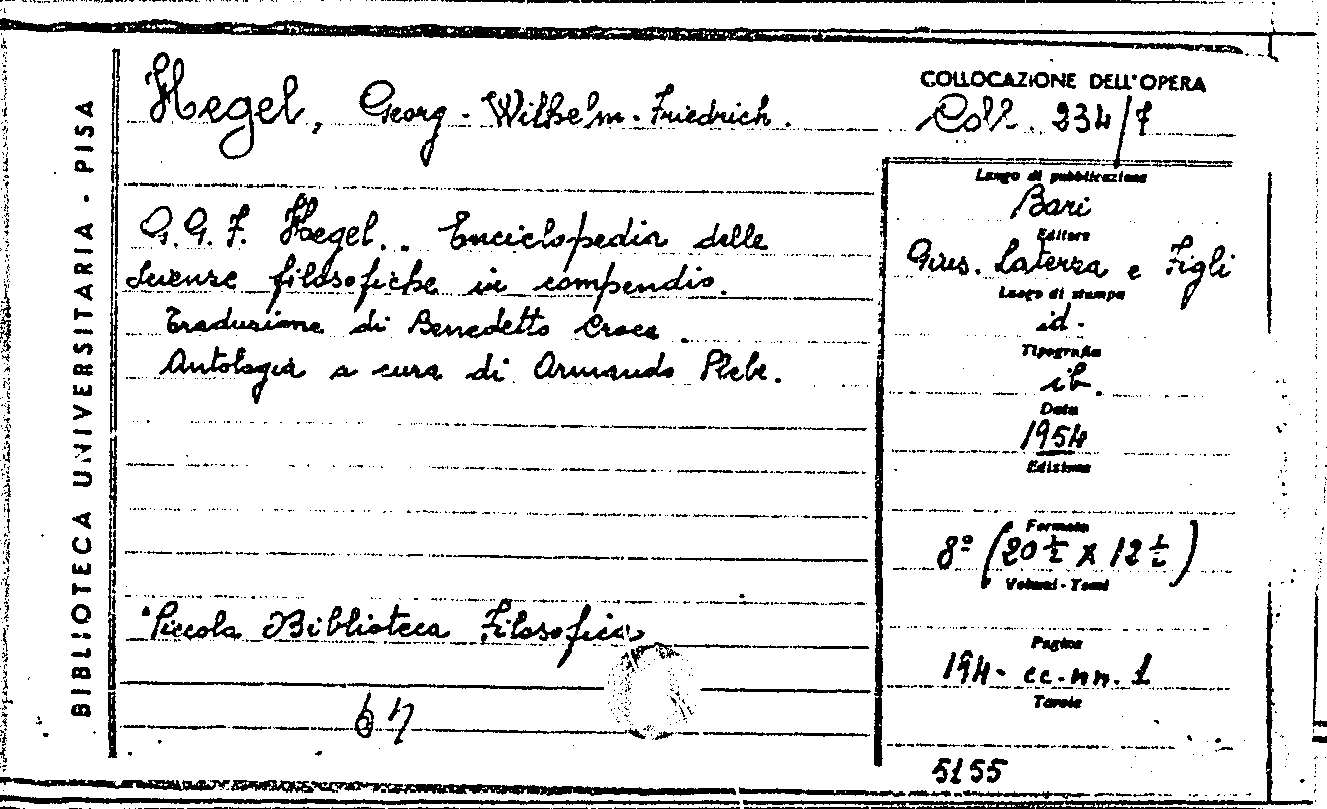 BIBLIOTECA UNIVERSITARIA - PISA
Hegel, Georg-Wilhelm-Friedrich.
G. G. F. Hegel.. Enciclopedia delle
Scienze filosofiche in compendio.
Traduzione di Benedetto Croce.
Antologia a cura di Armando Plebe.
Piccola Biblioteca Filosofica
67
COLLOCAZIONE DELL'OPERA
Coll. 234/7
Luogo di pubblicazione
Bari
Editore
Gius. Laterza e Figli
Luogo di stampa
id.
Tipografia
ib.
Data
1954
Edizione
Formato
8º (20 ½ x 12 ½)
Volumi - Tomi
Pagine
194 - cc. nn. 1
Tavole
5155